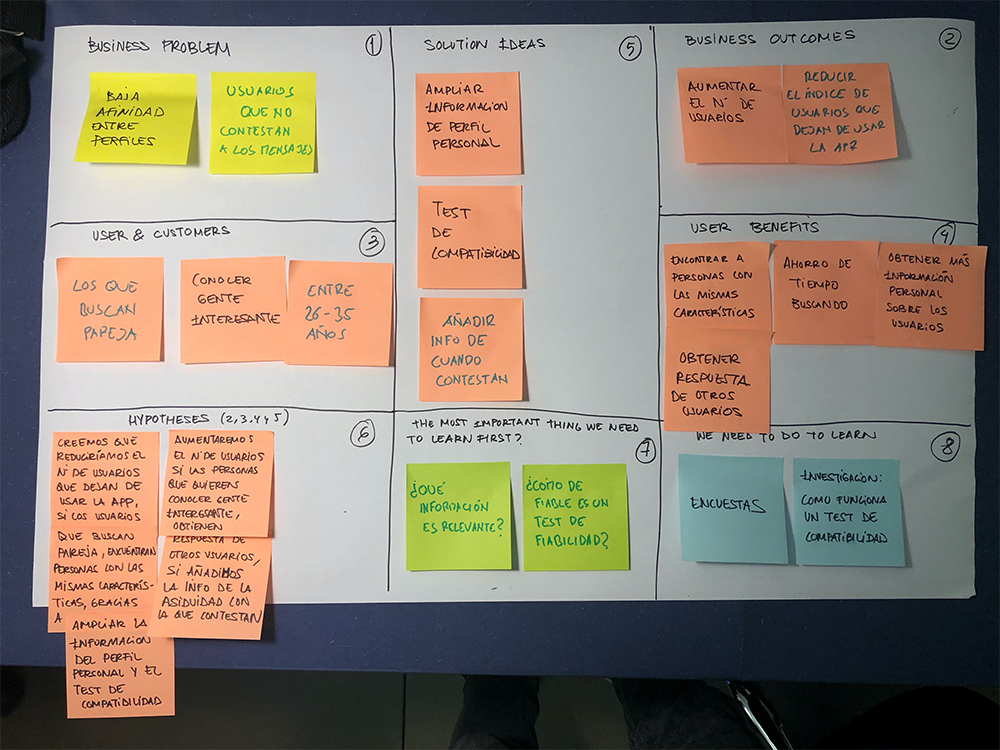 BUSINESS PROBLEM
1
BAJA
AFINIDAD
ENTRE
PERFILES
USUARIOS
QUE NO
CONTESTAN
A LOS MENSAJES
SOLUTION IDEAS
5
AMPLIAR
INFORMACION
DE PERFIL
PERSONAL
TEST
DE
COMPATIBILIDAD
AÑADIR
INFO DE
CUANDO
CONTESTAN
BUSINESS OUTCOMES
2
AUMENTAR
EL Nº DE
USUARIOS
REDUCIR
EL ÍNDICE DE
USUARIOS QUE
DEJAN DE USAR
LA APP
USER & CUSTOMERS
3
LOS QUE
BUSCAN
PAREJA
CONOCER
GENTE
INTERESANTE
ENTRE
26-35
AÑOS
USER BENEFITS
4
ENCONTRAR A
PERSONAS CON
LAS MISMAS
CARACTERÍSTICAS
AHORRO DE
TIEMPO
BUSCANDO
OBTENER MÁS
INFORMACIÓN
PERSONAL
SOBRE LOS
USUARIOS
OBTENER
RESPUESTA
DE OTROS
USUARIOS
HYPOTHESES (2,3,4 y 5)
6
CREEMOS QUE
REDUCIRÍAMOS EL
Nº DE USUARIOS
QUE DEJAN DE
USAR LA APP,
SI LOS USUARIOS
QUE BUSCAN
PAREJA, ENCUENTRAN
PERSONAS CON LAS
MISMAS CARACTERÍS-
TICAS, GRACIAS
A
AMPLIAR LA
INFORMACIÓN
DEL PERFIL
PERSONAL Y EL
TEST DE
COMPATIBILIDAD
AUMENTAREMOS
EL Nº DE USUARIOS
SI LAS PERSONAS
QUE QUIEREN
CONOCER GENTE
INTERESANTE,
OBTIENEN
RESPUESTA DE
OTROS USUARIOS,
SI AÑADIMOS
LA INFO DE LA
ASIDUIDAD CON
LA QUE CONTESTAN
THE MOST IMPORTANT THING WE NEED
TO LEARN FIRST?
7
¿QUÉ
INFORMACIÓN
ES RELEVANTE?
¿CÓMO DE
FIABLE ES UN
TEST DE
FIABILIDAD?
WE NEED TO DO TO LEARN
8
ENCUESTAS
INVESTIGACION:
COMO FUNCIONA
UN TEST DE
COMPATIBILIDAD